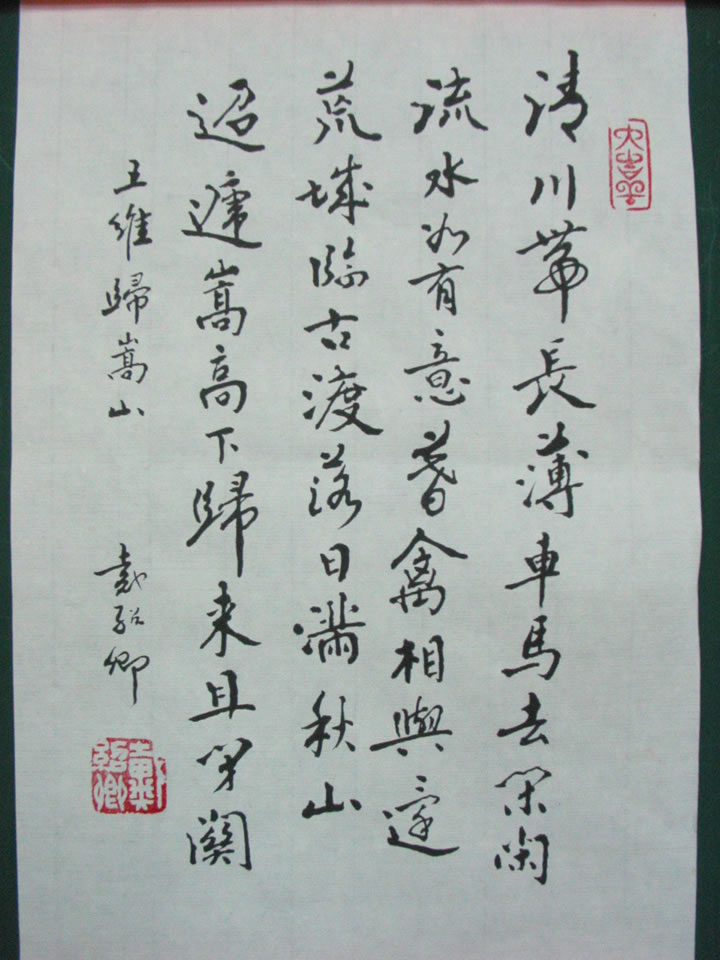 清川帶長薄車馬去閑閑
流水如有意暮禽相與還
荒城臨古渡落日滿秋山
迢遞嵩高下歸來且閉關
王維歸嵩山 戴紹卿
戴紹卿